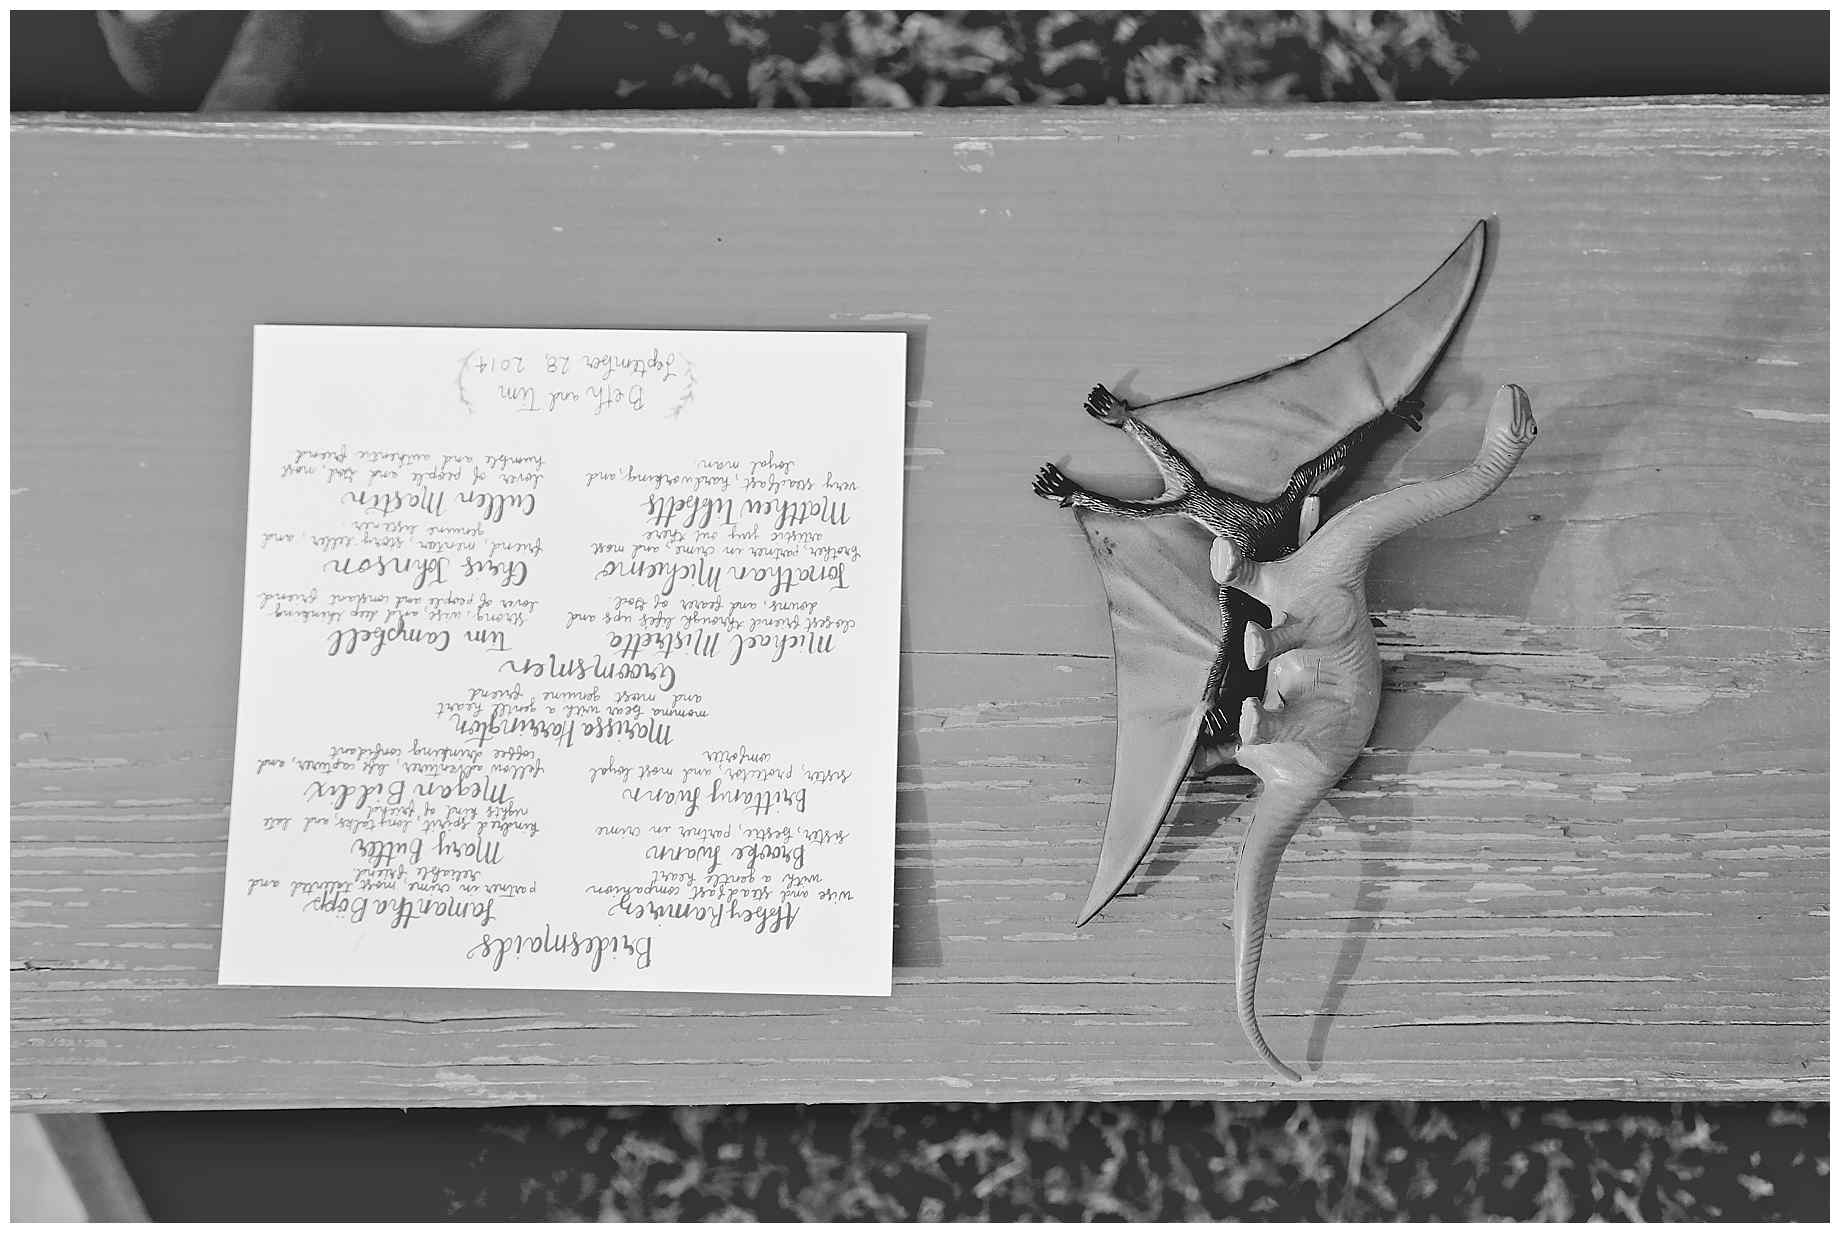 Bridesmaids
Abbey Ramirez
wise and steadfast companion
with a gentle heart
Samantha Böpp
partner in crime, most talented and
reliable friend
Brooke Swann
sister, bestie, partner in crime
Mary Butler
kindred spirit, long talks, and late
nights kind of friend
Brittany Swann
sister, protector, and most loyal
comforter
Megan Biddix
fellow adventurer, life capturer, and
coffee drinking confidant
Marissa Harrington
momma bear with a gentle heart
and most genuine friend
Groomsmen
Michael Mistretta
closest friend through life's ups and
downs, and fearer of God.
Tim Campbell
strong, wise, and deep thinking
lover of people and constant friend
Jonathan Michiemo
brother, partner in crime, and most
artistic guy out there
Chris Johnson
friend, mentor, story teller, and
genuine listener.
Matthew Tibbetts
very steadfast, hardworking, and
loyal man.
Cullen Mastin
lover of people and God, most
humble and authentic friend
Beth and Tim
September 28, 2014